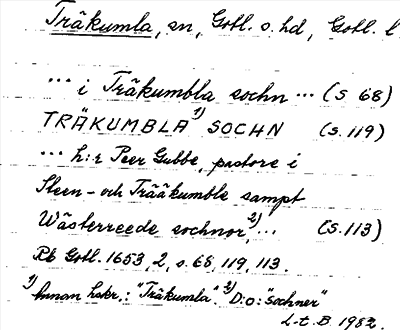 Träkumla, sn, Gotl. s. hd, Gotl. l
... i Träkumbla sochn ... (s 68)
TRÄKUMBLA 1) SOCHN (s. 119)
... h:r Peer Gubbe, pastore i
Steen- och Trääkumble sampt
Wästerreede sochnor 2), ... (s. 113)
Rb Gotl. 1653, 2, s. 68, 119, 113.
1) Annan hskr.: "Träkumla". 2) D:o: "sochner"
L-t. B. 1982.